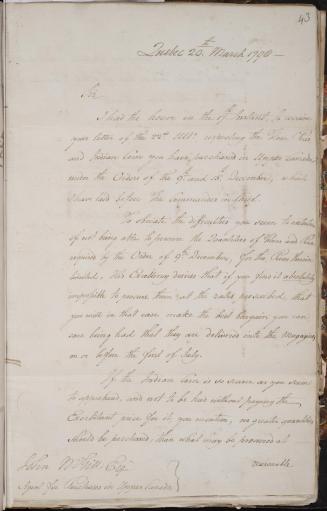 43
Quebec 20th March 1798 —
Sir
I had the honor on the 9th Instant, to receive
your letter of the 22d Ulto. respecting the Flour, Pease
and Indian Corn you have purchased in Upper Canada,
under the Orders of the 9th and 15th December, which
I have laid before the Commander in Chief.
To obviate the difficulties you seem to entertain
of not being able to procure the Quantities of Flour and Pease
required by the Order of 9th December, for the Prices therein
limited, His Excellency desires that if you find it absolutely
impossible to procure them at the rates prescribed, that
you will in that case make the best bargain you can
care being had that they are delivered into the Magazines
on or before the first of July.
If the Indian Corn is so scarce as you seem
to apprehend, and not to be had without paying the
Exorbitant price for it, you mention, no greater quantities
should be purchased, than what may be procured at
reasonable
John McGill Esqr
Agent for Purchases in Upper Canada